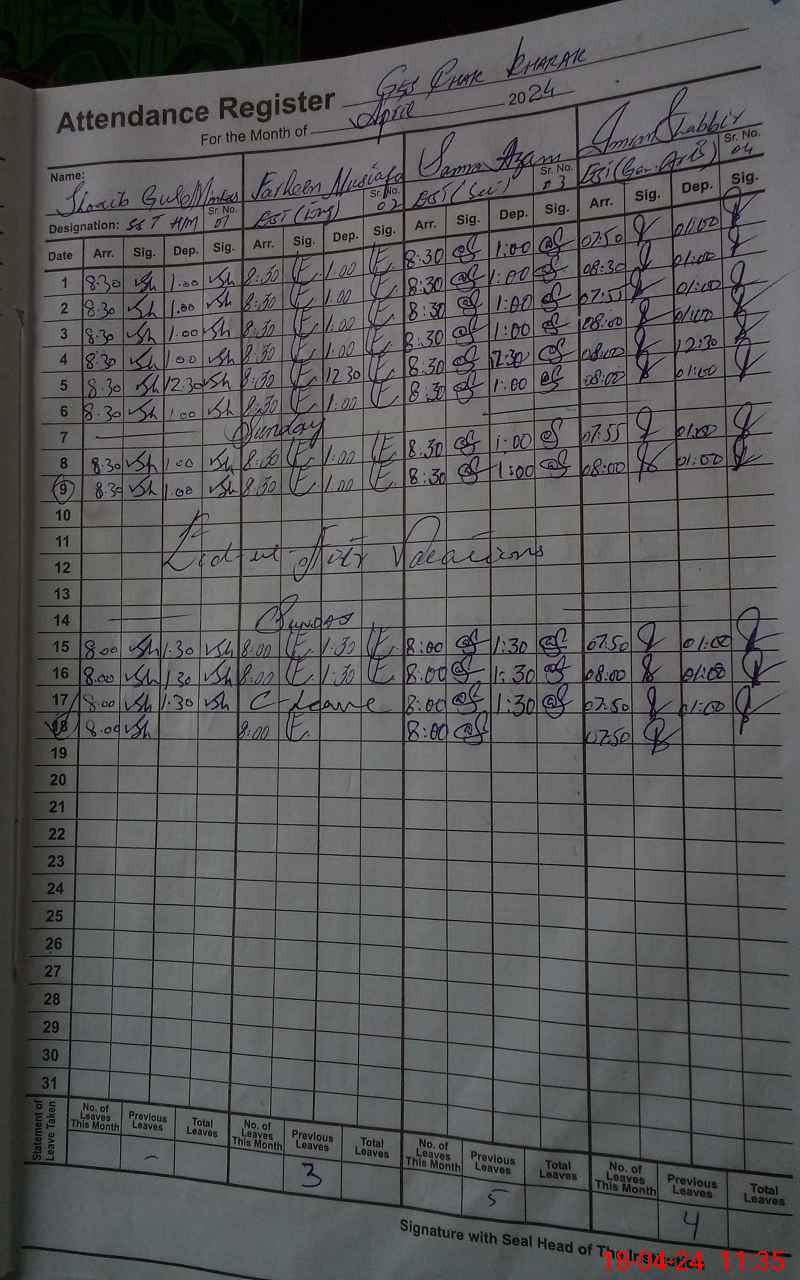 Attendance Register GES CHAK KHARAK
For the Month of April 2024
Name: Shoaib Gul Farheen Samra Azam Imran Shabbir
Designation: SST H/M Sr. No. 01 EST (Eng) Sr. No. 02 EST (Sci) Sr. No. 03 EST (Gen. Arts) Sr. No. 04
Date Arr. Sig. Dep. Sig. Arr. Sig. Dep. Sig. Arr. Sig. Dep. Sig. Arr. Sig. Dep. Sig.
1 8.30 Sh 1.00 Sh 8:30 1.00 8:30 1:00 07:50 01:00
2 8.30 Sh 1.00 Sh 8:30 1.00 8:30 1:00 08:30 01:00
3 8.30 Sh 1.00 Sh 8:30 1.00 8:30 1:00 07:55 01:00
4 8.30 Sh 1.00 Sh 8:30 1:00 8:30 1:00 08:00 01:00
5 8.30 Sh 12.30 Sh 8:30 12.30 8:30 12:30 08:00 12:30
6 8.30 Sh 1.00 Sh 8:30 1:00 8:30 1:00 08:00 01:00
7 Sunday
8 8.30 Sh 1.00 Sh 8:30 1:00 8:30 1:00 07:55 01:00
9 8.30 Sh 1.00 Sh 8:30 1.00 8:30 1:00 08:00 01:00
10
11
12 Eid-ul-Fitr Vacations
13
14 Sunday
15 8.00 Sh 1.30 Sh 8:00 1:30 8:00 1:30 07:50 01:00
16 8.00 Sh 1.30 Sh 8:00 1:30 8:00 1:30 08:00 01:00
17 8.00 Sh 1.30 Sh C-Leave 8:00 1:30 07:50 01:00
18 8.00 Sh 8:00 8:00 07:50
19
20
21
22
23
24
25
26
27
28
29
30
31
Statement of Leave Taken No. of Leaves This Month Previous Leaves Total Leaves No. of Leaves This Month Previous Leaves Total Leaves No. of Leaves This Month Previous Leaves Total Leaves No. of Leaves This Month Previous Leaves Total Leaves
- 3 5 4
Signature with Seal Head of The Institution
18-04-24 11:35